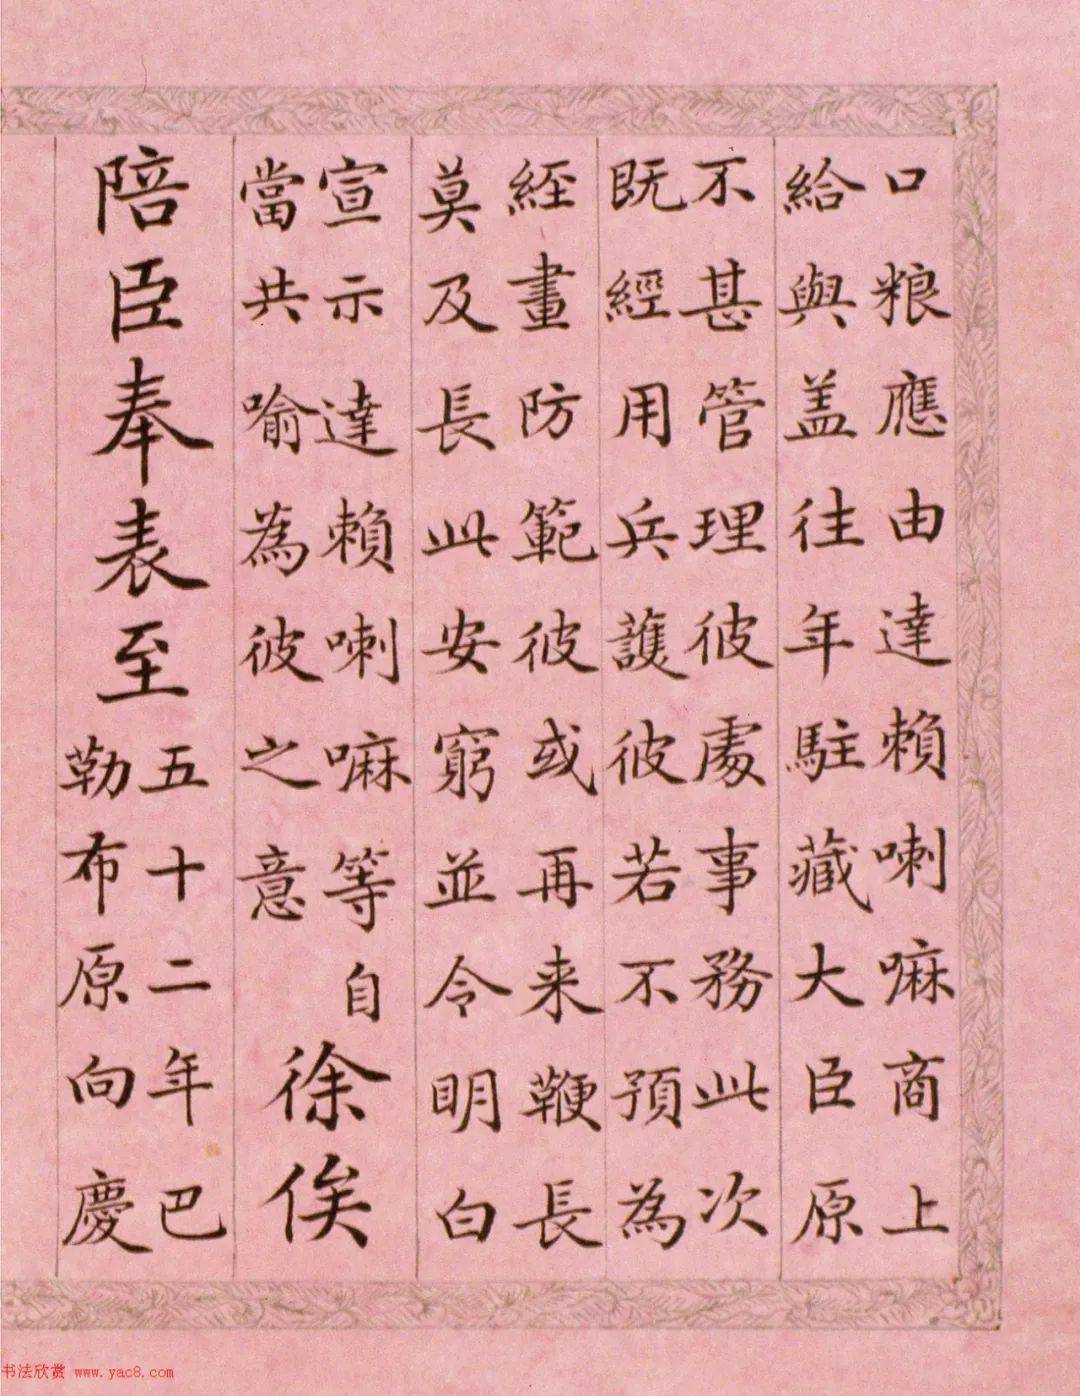 口粮應由達賴喇嘛商上
給與盖往年駐藏大臣原
不甚管理彼處事務此次
既經用兵護彼若不預為
經畫防範彼或再来鞭長
莫及長此安窮並令明白
宣示達賴喇嘛等自
當共喻為彼之意
徐俟
陪臣奉表至
五十二年巴
勒布原向慶
书法欣赏 www.yac8.com